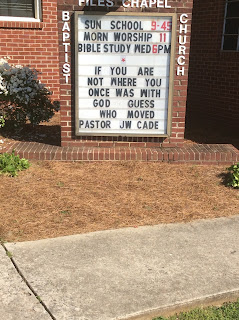 FILES CHAPEL
BAPTIST
CHURCH
SUN SCHOOL 9:45
MORN WORSHIP 11
BIBLE STUDY WED 6PM
*
IF YOU ARE
NOT WHERE YOU
ONCE WAS WITH
GOD GUESS
WHO MOVED
PASTOR JW CADE